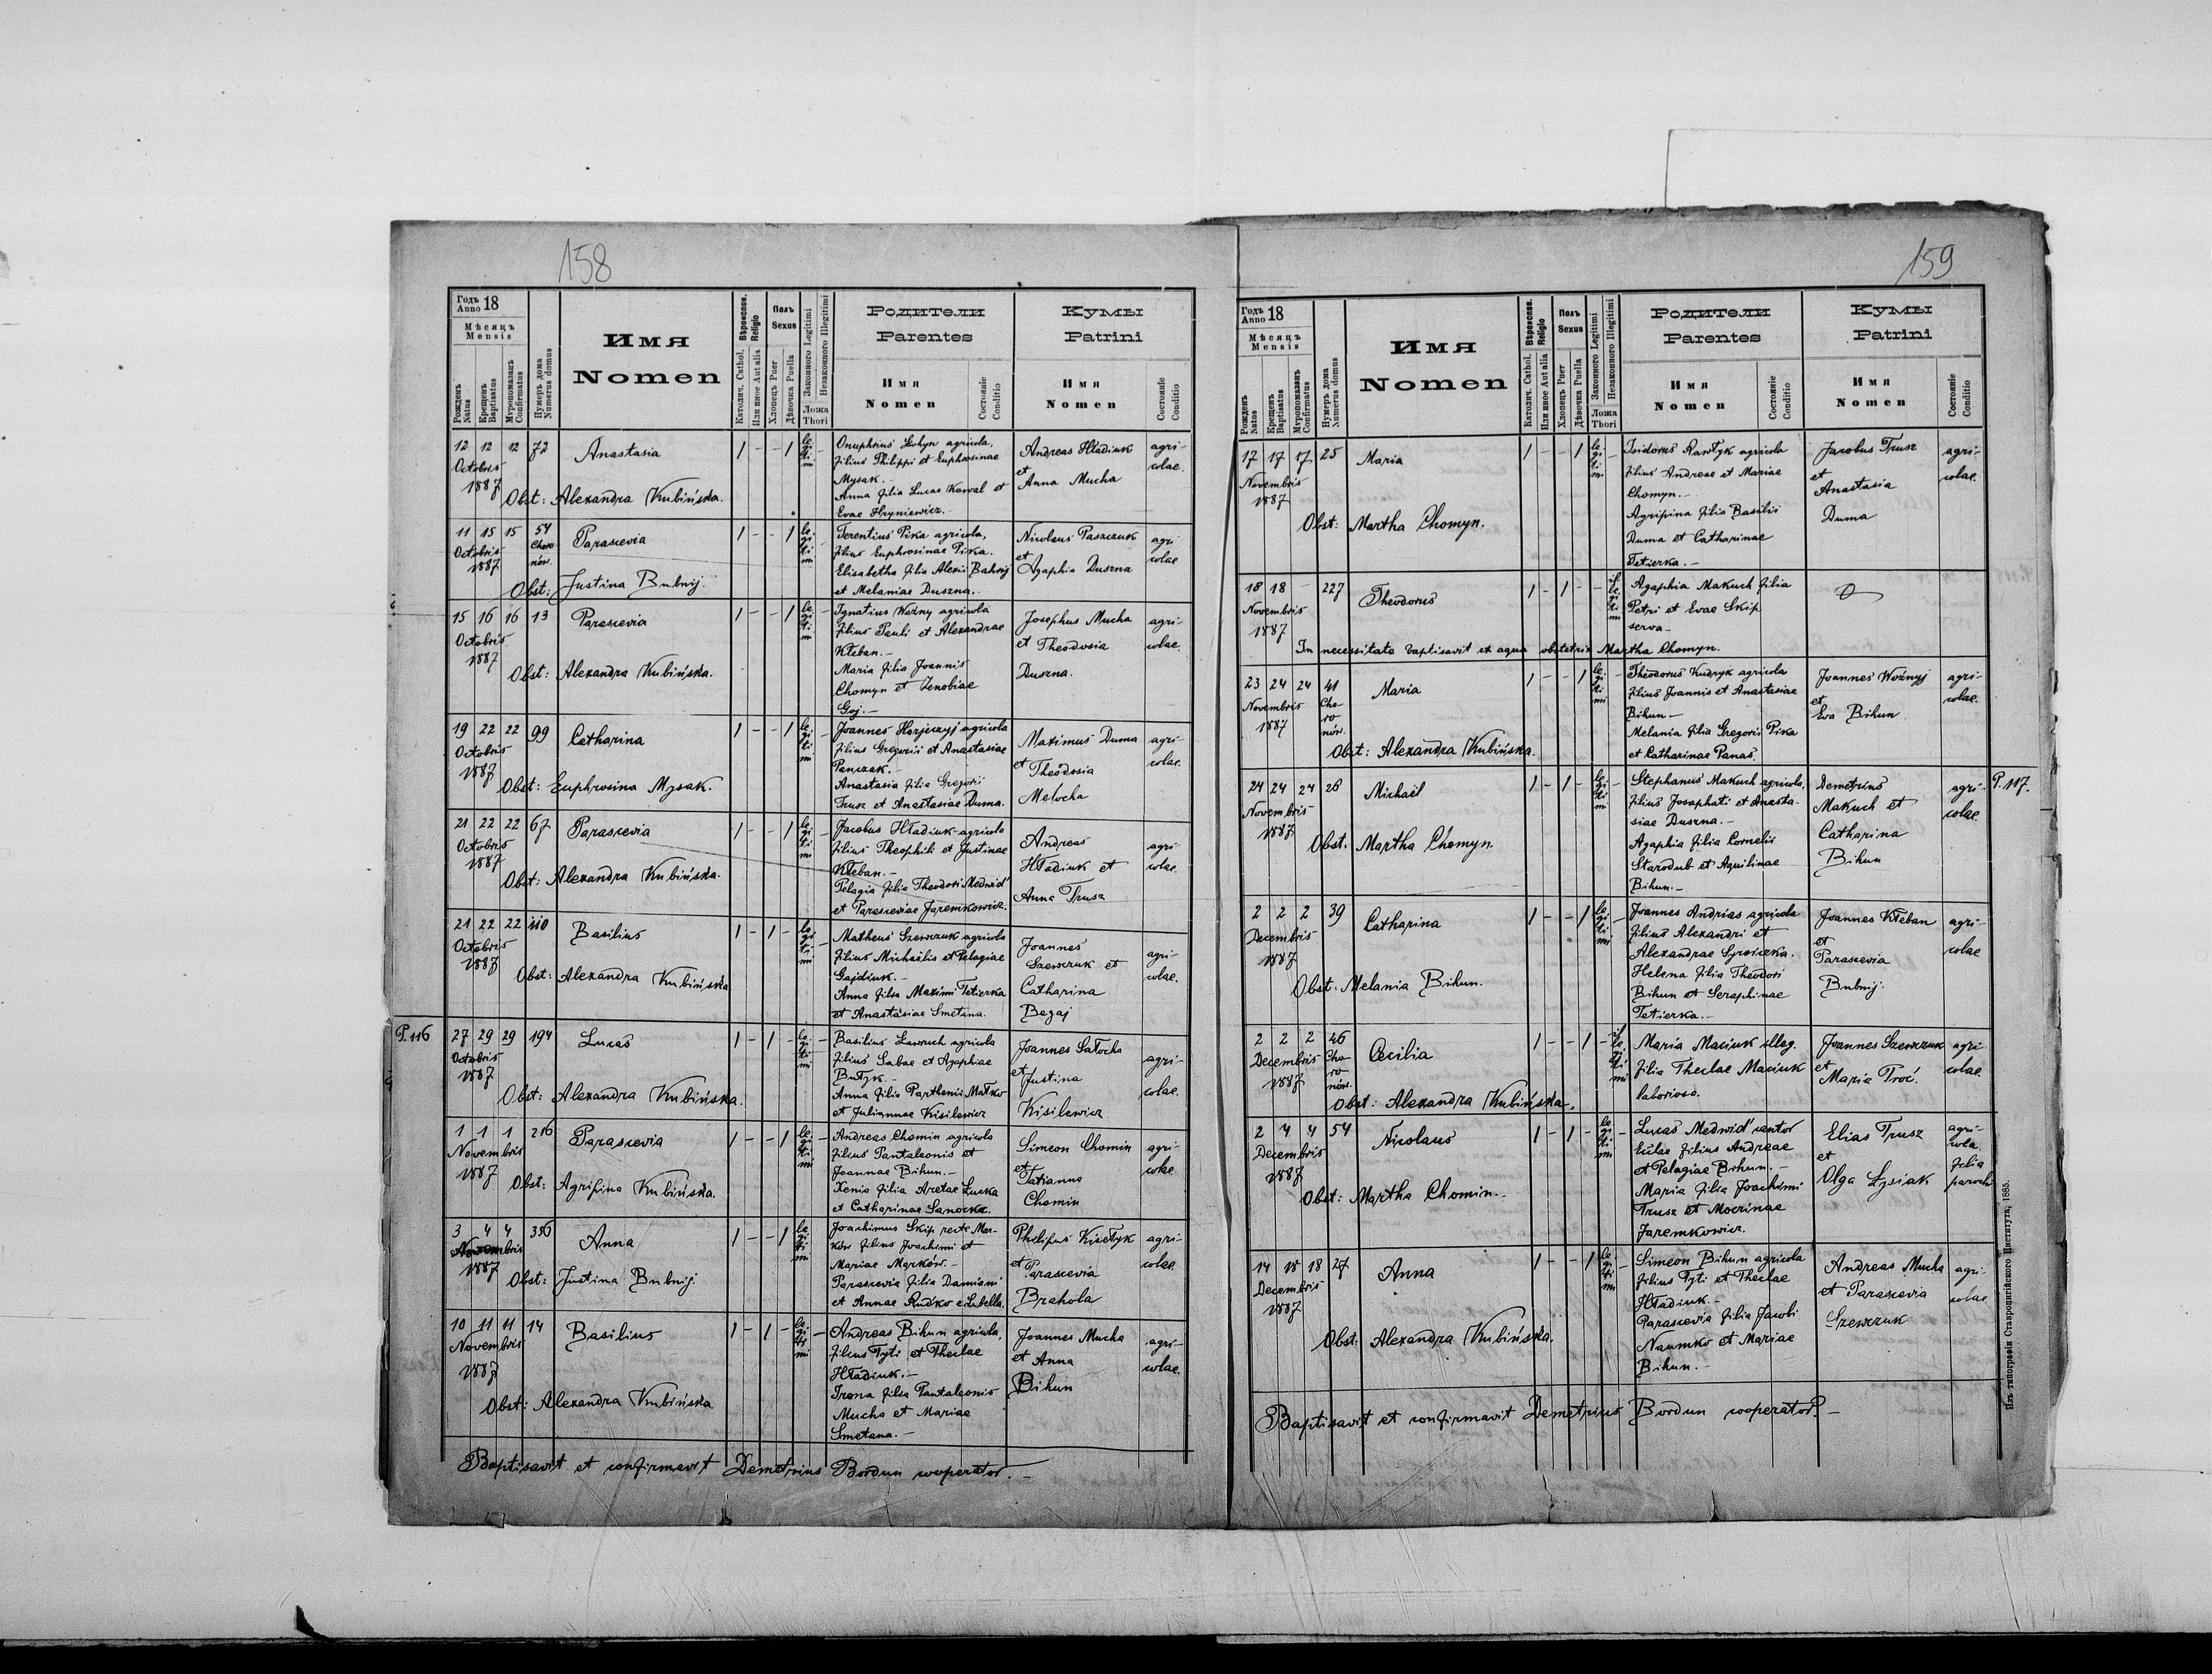 158
Годъ
Anno 18
Мѣсяцъ
Mensis
Рожденъ
Natus
Крещенъ
Baptisatus
Муропомазанъ
Confirmatus
Нумеръ дома
Numerus domus
Имя
Nomen
Вѣроиспов.
Religio
Католич. Cathol.
Или иное Aut alia
Полъ
Sexus
Хлопецъ Puer
Дѣвочка Puella
Законного Legitimi
Незаконного Illegitimi
Ложа
Thori
Родители
Parentes
Имя
Nomen
Состояніе
Conditio
Кумы
Patrini
Имя
Nomen
Состояніе
Conditio
12 12 12 72 Anastasia 1 - - 1 legitimi -
Octobris
1887
Obst: Alexandra Kubińska.
Onuphrius Lohyn agricola,
filius Philippi et Euphrosinae
Mysak.
Anna filia Lucas Kowal et
Evae Hryniewicz.-
Andreas Hładiuk
et
Anna Mucha
agri-
colae.
11 15 15 54 Choronów. Parascevia 1 - - 1 legitimi
Octobris
1887
Obst: Justina Bubnij.
Terentius Pika agricola,
filius Euphrosinae Pika.
Elisabetha filia Alexii Bahrij
et Melaniae Duszna.-
Nicolaus Paszczuk
et
Agaphia Duszna
agri
colae
15 16 16 13 Parascevia 1 - - 1 legitimi -
Octobris
1887
Obst: Alexandra Kubińska.
Ignatius Woźny agricola
filius Pauli et Alexandrae
Kłeban.-
Maria filia Joannis
Chomyn et Zenobiae
Goj.-
Josephus Mucha
et Theodosia
Duszna.
agri-
colae.
19 22 22 99 Catharina 1 - - 1 legitimi -
Octobris
1887
Obst: Euphrosina Mysak.
Joannes agricola
filius Gregorii et Anastasiae
Panczak.-
Anastasia filia Gregorii
Trusz et Anastasiae Duma.
Maximus Duma
et Theodosia
Melocha
agri-
colae.
21 22 22 67 Parascevia 1 - - 1 legitimi -
Octobris
1887
Obst: Alexandra Kubińska.
Jacobus Hładiuk agricola
filius Theophili et Justinae
Kłeban.-
Pelagia filia Theodori Medwid'
et Parasceviae Jaremkowicz.
Andreas
Hładiuk et
Anna Trusz
agri-
colae.
21 22 22 110 Basilius 1 - 1 - legitimi -
Octobris
1887
Obst: Alexandra Kubińska
Matheus Szewczuk agricola
filius Michaëlis et Pelagiae
Gajdiuk.-
Anna filia Maximi Tetierka
et Anastasiae Smetana.
Joannes
Szewczuk et
Catharina
Begaj
agri-
colae.
P. 116
27 29 29 194 Lucas 1 - 1 - legitimi -
Octobris
1887
Obst: Alexandra Kubińska.
Basilius Ławruch agricola
filius Sabae et Agaphiae
Butyk.-
Anna filia Parthenii Matko
et Juliannae Kisilewicz
Joannes Satocha
et
Justina
Kisilewicz
agri-
colae.
1 1 1 216 Parascevia 1 - - 1 legitimi -
Novembris
1887
Obst: Agripina Kubińska.
Andreas Chomin agricola
filius Pantaleonis et
Joannae Bihun.-
Xenia filia Aretae Łucka
et Catharinae Sanocka.
Simeon Chomin
et
Tatianna
Chomin
agri-
colae.
3 4 4 356 Anna 1 - - 1 legitimi -
Novembris
1887
Obst: Justina Bubnij
Joachimus Skip recte Mar-
ków filius Joachimi et
Mariae Marków.-
Parascevia filia Damiani
et Annae Rudko e Libella.
Philipus Kisełyk
et
Parascevia
Brahola
agri-
colae
10 11 11 14 Basilius 1 - 1 - legitimi -
Novembris
1887
Obst: Alexandra Kubińska
Andreas Bihun agricola,
filius Tyti et Theclae
Hładiuk.-
Irena filia Pantaleonis
Mucha et Mariae
Smetana.-
Joannes Mucha
et Anna
Bihun
agri-
colae.
Baptisavit et confirmavit Demetrius Bordun cooperator.-
159
Годъ
Anno 18
Мѣсяцъ
Mensis
Рожденъ
Natus
Крещенъ
Baptisatus
Муропомазанъ
Confirmatus
Нумеръ дома
Numerus domus
Имя
Nomen
Вѣроиспов.
Religio
Католич. Cathol.
Или иное Aut alia
Полъ
Sexus
Хлопецъ Puer
Дѣвочка Puella
Законного Legitimi
Незаконного Illegitimi
Ложа
Thori
Родители
Parentes
Имя
Nomen
Состояніе
Conditio
Кумы
Patrini
Имя
Nomen
Состояніе
Conditio
17 17 17 25 Maria 1 - - 1 legitimi -
Novembris
1887
Obst: Martha Chomyn.
Isidorus Rawłyk agricola
filius Andreae et Mariae
Chomyn.-
Agripina filia Basilii
Duma et Catharinae
Tetierka.-
Jacobus Trusz
et
Anastasia
Duma
agri-
colae.
18 18 - 227 Theodorus 1 - 1 - - illegitimi
Novembris
1887
Agaphia Makuch filia
Petri et Evae Skip
serva-
In necessitate baptisavit et aqua obstetrix Martha Chomyn.
23 24 24 41 Choronów. Maria 1 - - 1 legitimi -
Novembris
1887
Obst: Alexandra Kubińska.
Theodorus Kudryk agricola
filius Joannis et Anastasiae
Bihun-
Melania filia Gregorii Pika
et Catharinae Panas.
Joannes Woźnyj
et
Eva Bihun
agri-
colae.
24 24 24 26 Michaël 1 - 1 - legitimi -
Novembris
1887
Obst. Martha Chomyn.
Stephanus Makuch agricola,
filius Josaphati et Anasta-
siae Duszna.-
Agaphia filia Cornelii
Starodub et Aquilinae
Bihun.-
Demetrius
Makuch et
Catharina
Bihun
agri-
colae
P. 117.
2 2 2 39 Catharina 1 - - 1 legitimi -
Decembris
1887
Obst. Melania Bihun.
Joannes Andrias agricola
filius Alexandri et
Alexandrae Syroiczka.
Helena filia Theodori
Bihun et Seraphinae
Tetierka.-
Joannes Kłeban
et
Parascevia
Bubnij.
agri-
colae
2 2 2 46 Choronów. Cecilia 1 - - 1 - illegitimi
Decembris
1887
Obst: Alexandra Kubińska.
Maria Maciuk illeg.
filia Theclae Maciuk
laboriosa.
Joannes Szewczuk
et
Maria Troć.
agri
colae.
2 4 4 54 Nicolaus 1 - 1 - legitimi -
Decembris
1887
Obst: Martha Chomin.-
Lucas Medwid' cantor
filius Andreae
et Pelagiae Bihun.-
Maria filia Joachimi
Trusz et Mocrinae
Jaremkowicz.
Elias Trusz
et
Olga Łysiak
agri-
cola.
filia
parochi
14 18 18 27 Anna 1 - - 1 legitimi -
Decembris
1887
Obst: Alexandra Kubińska.
Simeon Bihun agricola
filius Tyti et Theclae
Hładiuk.-
Parascevia filia Jacobi
Naumko et Mariae
Bihun.-
Andreas Mucha
et Parascevia
Szewczuk
agri-
colae
Baptisavit et confirmavit Demetrius Bordun cooperator.-
Изъ типографіи Ставропигійского Института, 1885.